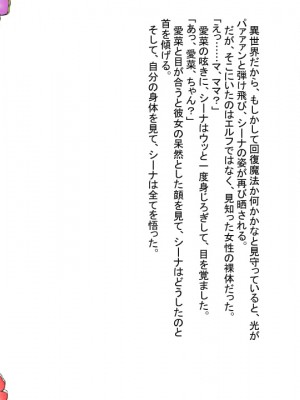 異世界だから、もしかして回復魔法か何かかなと見守っていると、光が
バァァンと弾け飛び、シーナの姿が再び晒される。
だが、そこにいたのはエルフではなく、見知った女性の裸体だった。
「えっ……マ、ママ？」
愛菜の呟きに、シーナはウッと一度身じろぎして、目を覚ました。
「あっ、愛菜、ちゃん？」
愛菜と目が合うと彼女の呆然とした顔を見て、シーナはどうしたのと
首を傾げる。
そして、自分の身体を見て、シーナは全てを悟った。